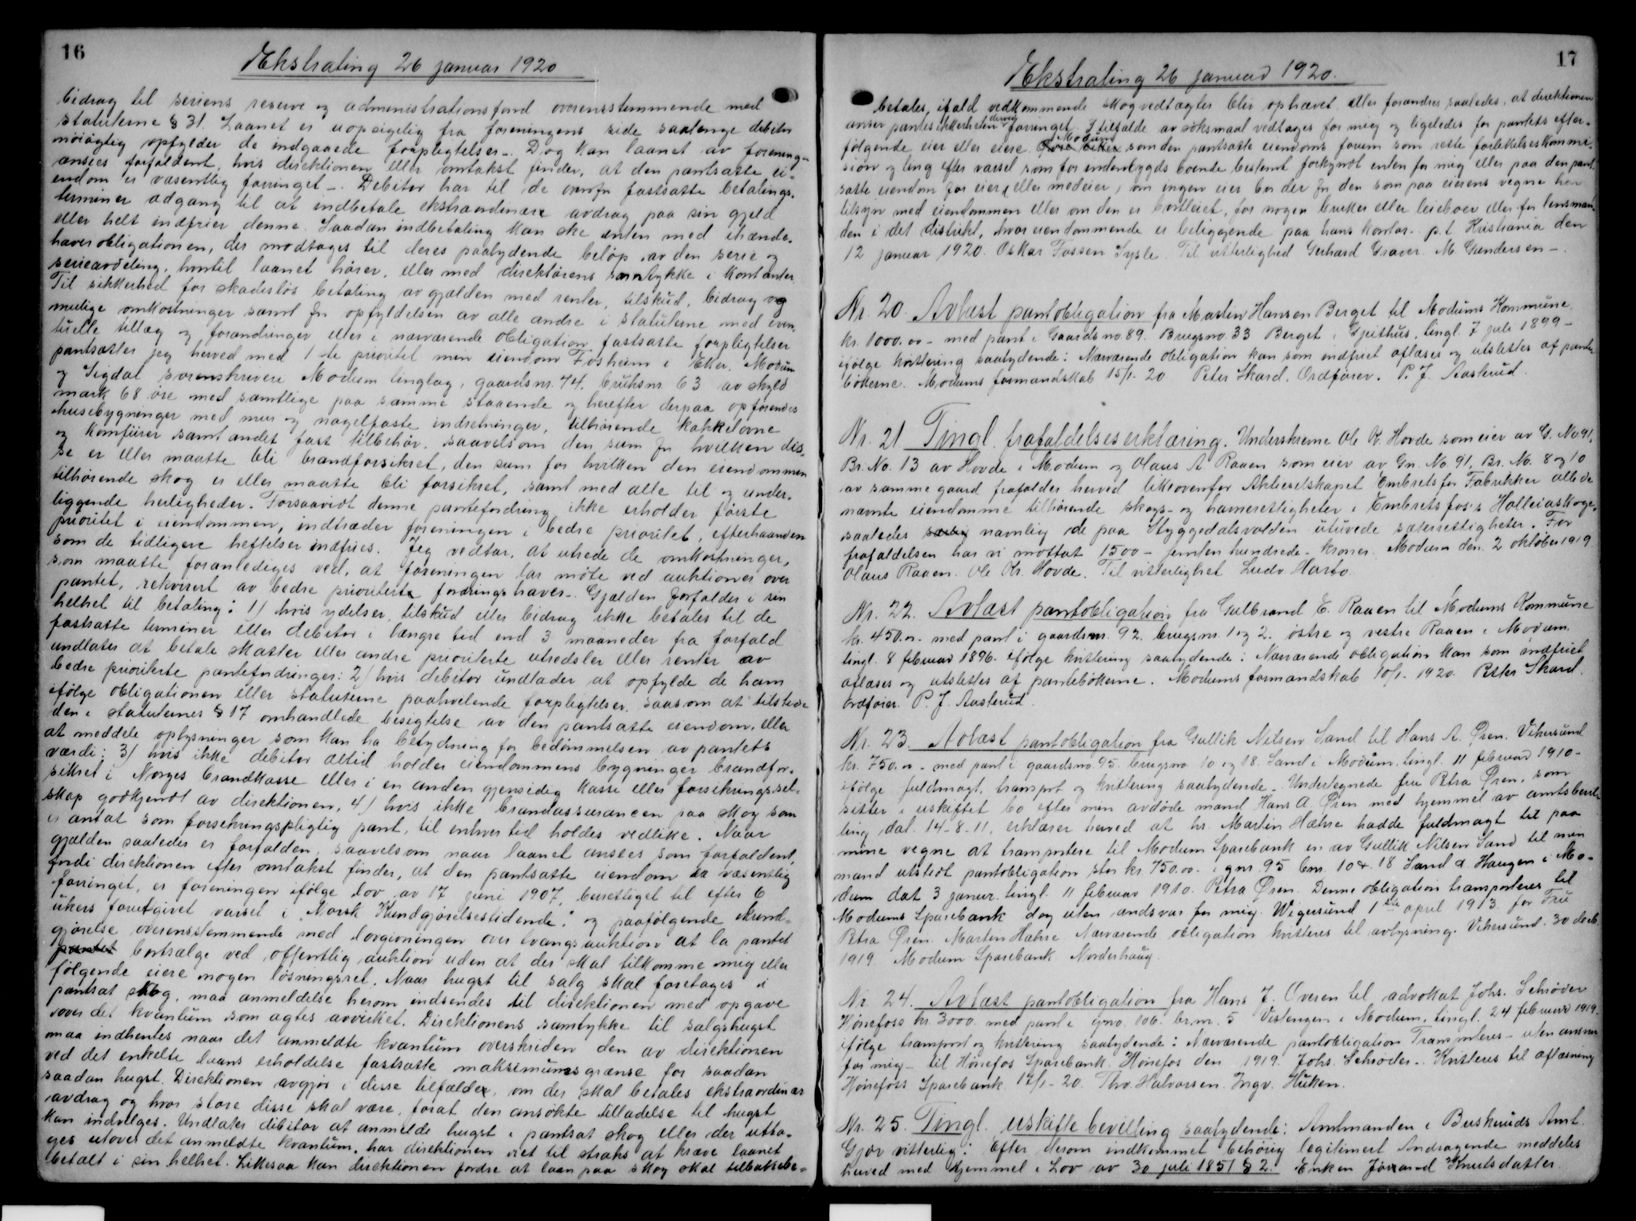 16
Ekstrating 26 januar 1920
bidrag til seriens reserve og administrationsfond overensstemmende med
statuterne § 31. Laanet er uopsigelig fra foreningens side saalenge debitor
nøiagtig opfylder de indgaaede forpligtelser -. Dog kan laanet av forening-
ansees forfaldent, hvis direktionen efter omtakst finder, at den pantsatte ei-
endom er væsentlig forringet -. Debitor har til de ovenfor fastsatte betalings-
terminer adgang til at indbetale ekstraordinære avdrag paa sin gjeld
eller helt indfrier denne. Saadan indbetaling kan ske enten med ihænde-
haverobligationen, der modtages til deres paalydende beløp, av den serie og
serieavdeling, hvortil laanet hører, eller med direktørens samtykke i kontanter
Til sikkerhed for skadesløs betaling av gjælden med renter, tilskud, bidrag og
mulige omkostninger samt for opfyldelsen av alle andre i statuterne med even-
tuelle tillæg og forandringer eller i nærværende obligation fastsatte forpligtelser
pantsætter jeg herved med 1ste prioritet min eiendom Fosheim i Eker, Modum
og Sigdal sorenskriveri Modum tinglag, gaardsnr. 74, bruksnr. 63 av skyld
mark 68 øre med samtlige paa samme staaende og herefter derpaa opførendes
husebygninger med mur og nagelfaste indretninger, tilhørende kakkelovne
og komfurer samt andet fast tilbehør, saavelsom den sum for hvilken dis-
se er eller maatte bli brandforsikret, den sum for hvilken den eiendommen
tilhørende skog er eller maatte bli forsikret, samt med alle til og under-
liggende herligheder. Forsaavidt denne pantefordring ikke erholder første
prioritet i eiendommen, indtræder foreningen i bedre prioritet, efterhaanden
som de tidligere heftelser indfries. Jeg vedtar, at utrede de omkostninger,
som maatte foranlediges ved, at foreningen lar møte ved auktioner over
pantet, rekvirert av bedre prioriterte fordringshaver -. Gjælden forfalder i sin
helhet til betaling: 1/ hvis ydelser, tilskud eller bidrag ikke betales til de
fastsatte terminer eller debitor i længre tid end 3 maaneder fra forfald
undlater at betale skatter eller andre prioriterte utredsler eller renter av
bedre prioriterte pantefordringer: 2/ hvis debitor undlader at opfylde de ham
ifølge obligationen eller statuterne paahvilende forpligtelser, saasom at tilstede
den i statuternes § 17 omhandlede besigtelse av den pantsatte eiendom, eller
at meddele oplysninger som kan ha betydning for bedømmelsen av pantets
værdi; 3/ hvis ikke debitor altid holder eiendommens bygninger brandfor-
sikret i Norges brandkasse eller i en anden gjensidig kasse eller forsikringssel-
skap godkjendt av direktionen, 4/ hvis ikke brandassurancen paa skog som
er antat som forsikringspligtig pant, til enhver tid holdes vedlike. Naar
gjælden saaledes er forfalden, saavelsom naar laanet ansees som forfaldent,
fordi direktionen efter omtakst finder, at den pantsatte eiendom er væsentlig
forringet, er foreningen ifølge lov av 17 juni 1907, berettiget til efter 6
ukers forutgivet varsel i "Norsk Kundgjørelsestidende" og paafølgende kund-
gjørelse overensstemmende med lovgivningen over tvangsauktion at la pantet
pantet bortsælge ved offentlig auktion uden at der skal tilkomme mig eller
følgende eiere nogen løsningsret. Naar hugst til salg skal foretages i
pantsat skog, maa anmeldelse herom indsendes til direktionen med opgave
over det kvantum som agtes avvirket. Direktionens samtykke til salgshugst
maa indhentes naar det anmeldte kvantum overskriden den av direktionen
ved det enkelte laans erholdelse fastsatte maksimumsgrænse for saadan
saadan hugst. Direktionen avgjør i disse tilfælder, om der skal betales ekstraordinær
avdrag og hvor store disse skal være, forat den ansøkte tilladelse til hugst
kan indvilges. Undlater debitor at anmelde hugst i pantsat skog eller der utta-
ges utover det anmeldte kvantum, har direktionen ret til straks at kræve laanet
betalt i sin helhet. Likesaa kan direktionen fordre at laan paa skog skal tilbakebe-
17
Ekstrating 26 januar 1920.
betales, ifald vedkommende skogvedtægter blir ophævet eller forandres saaledes, at direktionen
anser pantesikkerheten derved forringet. I tilfælde av søksmaal vedtages for mig og ligeledes for pantets efter-
følgende eier eller eiere Modum som den pantsatte eiendoms forum som rette forlikelseskommis-
sion og ting efter varsel som for indenbygds boende bestemt forkyndt enten for mig eller paa den pant-
satte eiendom for eier (eller medeier) om ingen eier bor der for den som paa eierens vegne har
tilsyn med eiendommen eller om den er bortleiet, for nogen bruker eller leieboer eller for lensman-
den i det distrikt, hvor eiendommende er beliggende paa hans kontor. p.t. Kristiania den
12 januar 1920. Oskar Fossen Sysle. Til vitterlighed Gerhard Graver. M. Gundersen -.
Nr. 20. Avlæst pantobligation fra Martin Hansen Berget til Modums Kommune
kr. 1000.00 - med pant i Gaards no. 89. Brugsno. 33 Berget i Geithus, tingl. 7 juli 1899 -
ifølge kvittering saalydende: Nærværende obligation kan som indfriet aflæses og utslettes af pante-
bökerne. Modums formandskab 15/1-20 Peter Skard. Ordfører. P. J. Aasterud.
Nr. 21 Tingl. frafaldelseserklæring. Underskrevne Ole K. Hovde som eier av G. No 91,
Br. No. 13 av Hovde i Modum og Olaus A Raaen som eier av Gn. No 91, Br. No. 8 og 10
av samme gaard frafalder herved likeovenfor Aktieselskapet Embretsfos Fabrikker alle de
nævnte eiendomme tilhørende skogs- og havnerettigheter i Embretsfos's Holleiaskoge,
saaledes navnlig de paa Styggedalsvolden utøvede sæterrettigheter. For
frafaldelsen har vi mottat 1500 - femten hundrede - kroner. Modum den 2 oktober 1919
Olaus Raaen. Ole Kr. Hovde. Til vitterlighet Ludv Aasto.
Nr. 22. Avlæst pantobligation fra Gulbrand E. Raaen til Modums Kommune
kr. 450.00. med pant i gaardsnr. 92 brugsnr. 1 og 2. østre og vestre Raaen i Modum
tingl. 8 februar 1896. ifølge kvittering saalydende: Nærværende obligation kan som indfriet
aflæses og utslettes af pantebökerne. Modums formandskab 10/1-1920 Peter Skard.
ordfører. P. J. Aasterud.
Nr. 23. Avlæst pantobligation fra Gullik Nilsen Sand til Hans A. Øren. Vikersund
kr. 750.00 - med pant i gaardsno 95 brugsno 10 og 18. Sand i Modum. tingl. 11 februar 1910 -
ifølge fuldmagt, transport og kvittering saalydende. Undertegnede fru Petra Øren, som
sitter i uskiftet bo efter min avdøde mand Hans A. Øren med hjemmel av amtsbevil-
ling dat. 14-8-11, erklærer herved at hr. Martin Hæhre hadde fuldmagt til paa
mine vegne at transportere til Modum Sparebank en av Gullik Nilsen Sand til min
mand utstedt pantobligation stor kr 750.00 i gnr. 95 bnr. 10 & 18 Sand & Haugen i Mo-
dum dat. 3 januar. tingl. 11 februar 1910. Petra Øren. Denne obligation transporteres til
Modums Sparebank dog uten andsvar for mig. Wigersund 1ste april 1913. for Fru
Petra Øren. Martin Hæhre. Nærværende obligation kvitteres til avlysning. Vikersund. 30 decb
1919. Modum Sparebank Norderhaug.
Nr. 24. Avlæst pantobligation fra Hans J. Oversen til advokat Johs. Schrøder
Hønefoss kr. 3000. med pant i gno. 106. br.nr. 5 Vestengen i Modum. tingl. 24 februar 1919.
ifølge transport og kvittering saalydende: Nærværende pantobligation transporteres - uten ansvar
for mig - til Hønefos Sparebank. Hønefos den 1919. Johs. Schrøder. Kvitteres til aflæsning
Hønefoss Sparebank 12/1-20. Thv. Halvorsen. Ingv. Huken.
Nr. 25. Tingl. uskiftebevilling saalydende: Amtmanden i Buskeruds Amt
Gjør vitterlig: Efter derom indkommet behörig legitimert Andragende meddeles
herved med Hjemmel i Lov av 30 juli 1851 § 2. Enken Jøran Knutsdatter